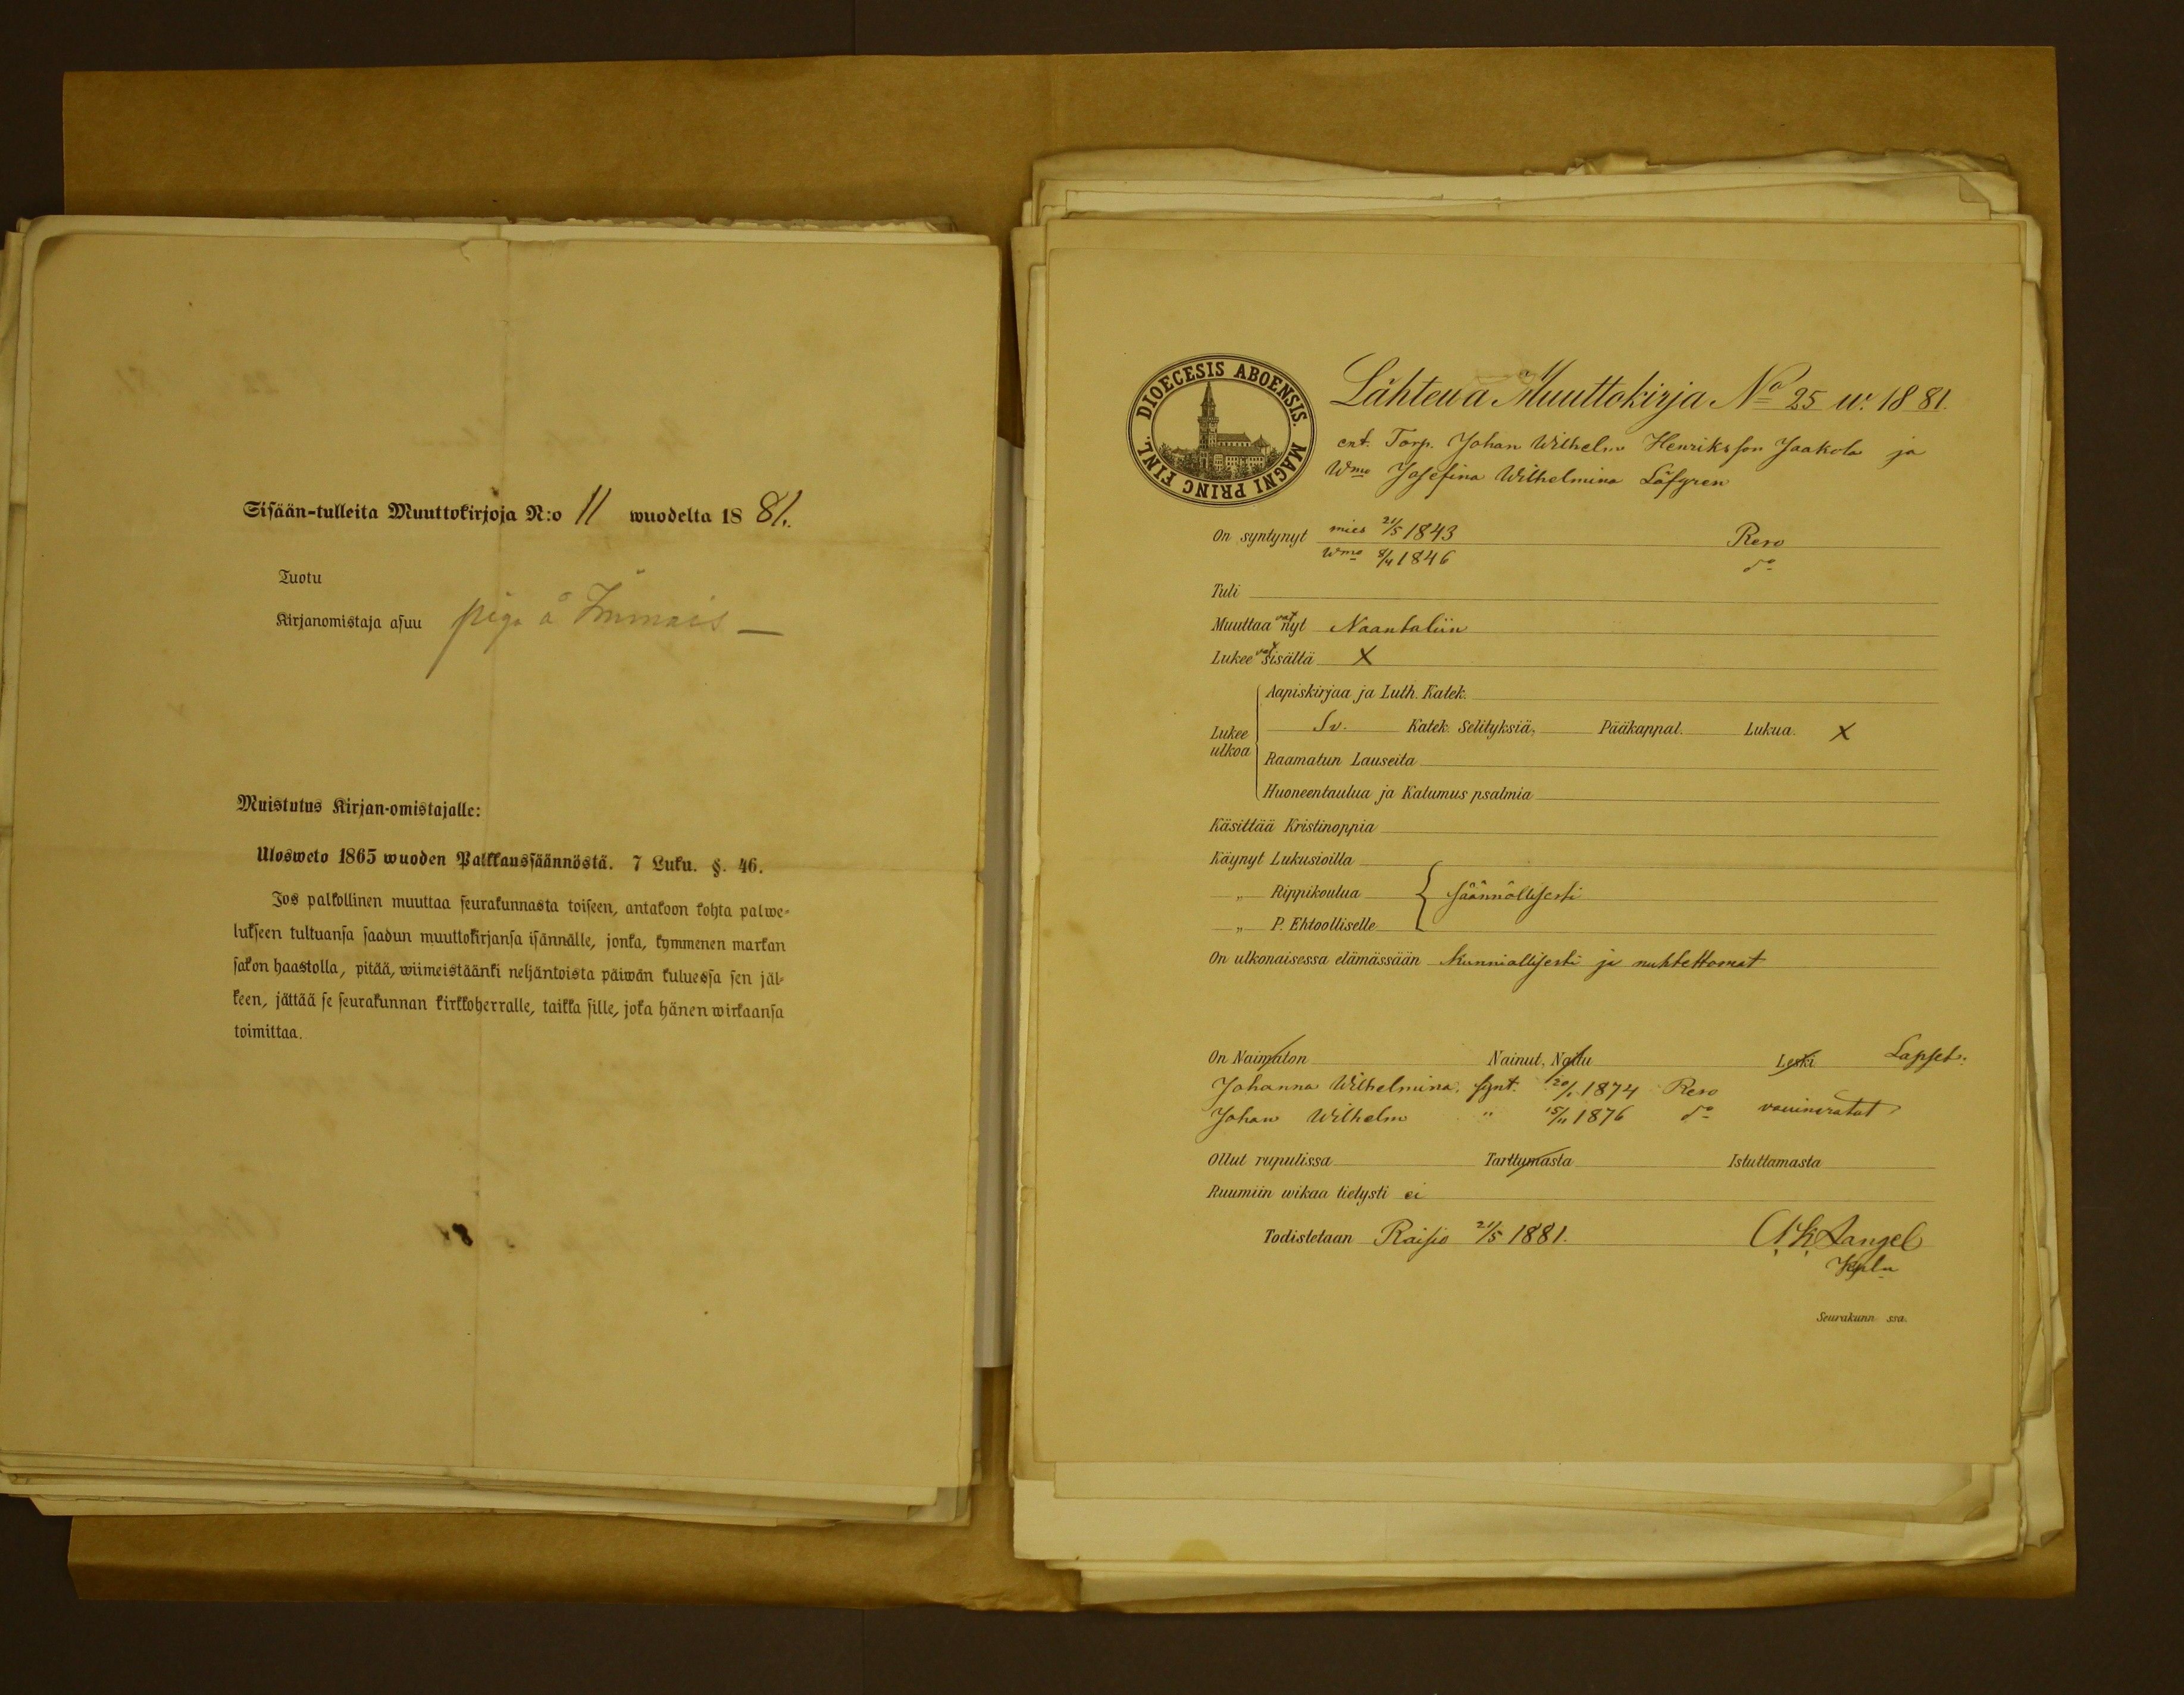 Sisään-tulleita Muuttokirjoja N:o 11 wuodelta 1881.
Tuotu
Kirjanomistaja asuu piga å Immais —
Muistutus Kirjan-omistajalle:
Ulosweto 1865 wuoden Palkkaussäännöstä. 7 Luku. §. 46.
Jos palkollinen muuttaa seurakunnasta toiseen, antakoon kohta palwe-
lukseen tultuansa saadun muuttokirjansa isännälle, jonka, kymmenen markan
sakon haastolla, pitää, wiimeistäänki neljäntoista päiwän kuluessa sen jäl-
keen, jättää se seurakunnan kirkkoherralle, taikka sille, joka hänen wirkaansa
toimittaa.
DIOECESIS ABOENSIS. MAGNI PRINC FINL.
Lähtewä Muuttokirja No 25 w. 1881.
ent. Torp. Johan Wilhelm Henriksson Jaakola ja
Wmo Josefina Wilhelmina Löfgren
On syntynyt mies 21/5 1843 Reso
Wmo 8/4 1846 do
Tuli
Muuttaavat nyt Naantaliin
Lukeevat sisältä X
Aapiskirjaa ja Luth. Katek.
Lukee ulkoa Sv. Katek. Selityksiä, Pääkappal. Lukua. X
Raamatun Lauseita
Huoneentaulua ja Katumus psalmia
Käsittää Kristinoppia
Käynyt Lukusioilla
„ Rippikoulua säännöllisesti
„ P. Ehtoolliselle
On ulkonaisessa elämässään kunniallisesti ja nuhteettomat
On Naimaton Nainut, Naitu Leski Lapset:
Johanna Wilhelmina synt. 20/1 1874 Reso
Johan Wilhelm " 15/11 1876 do
Ollut rupulissa Tarttumasta Istuttamasta
Ruumiin wikaa tietysti ei
Todistetaan Raisio 21/5 1881.
Seurakunn ssa.